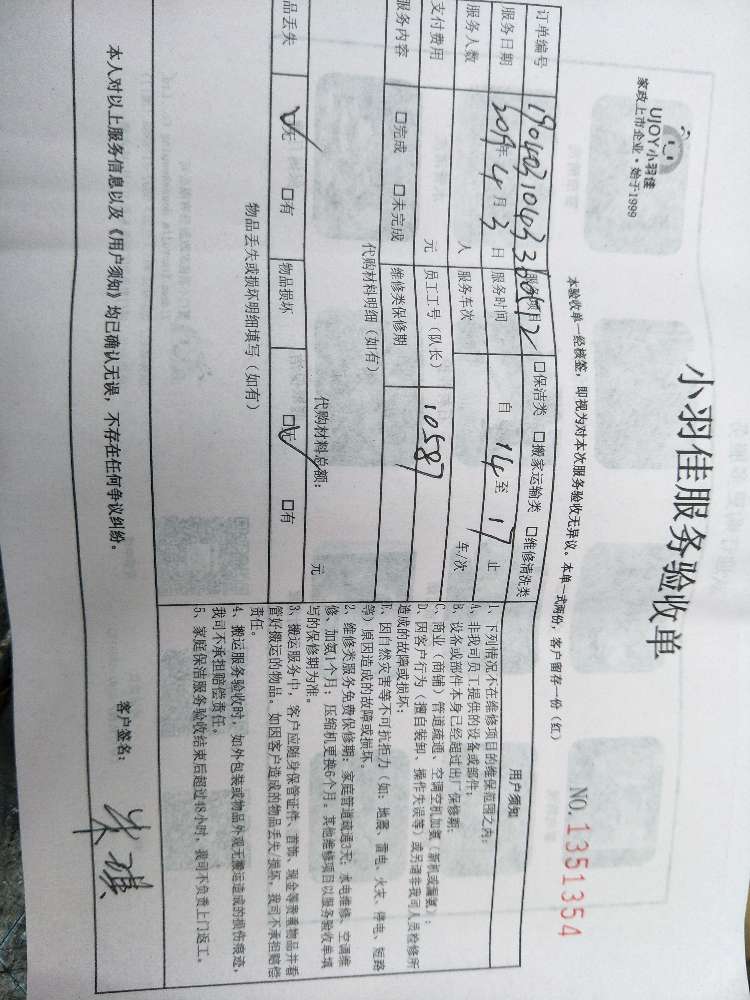 UJOY小羽佳
家政上市企业·始于1999
小羽佳服务验收单
NO.1351354
本验收单一经核签，即视为对本次服务验收无异议。本单一式两份，客户留存一份（红）
订单编号 服务项目 □保洁类 □搬家运输类 □维修清洗类
服务日期 2019年4月3日 服务时间 自 14 至 17 止
服务人数 人 服务车次 车/次
支付费用 元 员工工号（队长） 10587
服务内容 □完成 □未完成 维修类保修期
代购材料明细（如有）
代购材料总额： 元
品丢失 ☑无 □有 物品损坏 ☑无 □有
物品丢失或损坏明细填写（如有）
用户须知
1、下列情况不在维修项目的维保范围之内：
A、非我司员工提供的设备或部件；
B、设备或部件本身已经超过出厂保修期；
C、商业（商铺）管道疏通、空调空机加氨（新机或漏氨）；
D、因客户行为（擅自装卸、操作失误等）或另请非我司人员检修所
造成的故障或损坏；
E、因自然灾害等不可抗拒力（如：地震、雷电、火灾、停电、短路
等）原因造成的故障或损坏。
2、维修类服务免费保修期：家庭管道疏通3天；水电维修、空调维
修、加氨1个月；压缩机更换6个月。其他维修项目以服务验收单填
写的保修期为准。
3、搬运服务中，客户应随身保管证件、首饰、现金等贵重物品并看
管好搬运的物品。如因客户造成的物品丢失、损坏，我司不承担赔偿
责任。
4、搬运服务验收时，如外包装或物品外观无搬运造成的损伤痕迹，
我司不承担赔偿责任。
5、家庭保洁服务验收结束后超过48小时，我司不负责上门返工。
本人对以上服务信息以及《用户须知》均已确认无误，不存在任何争议纠纷。
客户签名：